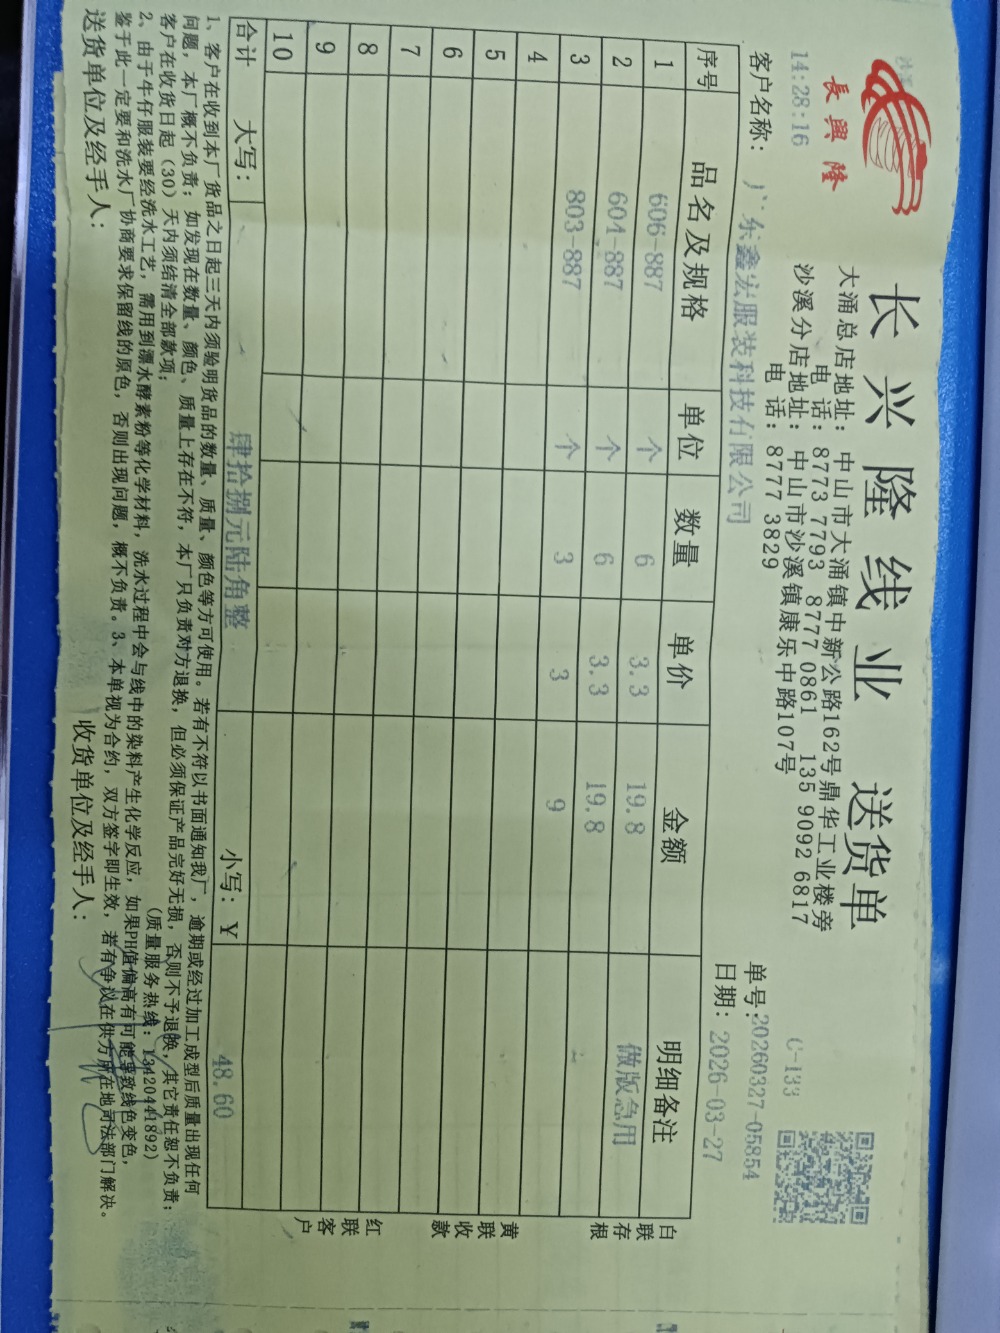 長興隆
长兴隆线业 送货单
C-133
14:28:16
大涌总店地址：中山市大涌镇中新公路162号鼎华工业楼旁
电 话：8773 7793 8777 0861 135 9092 6817
沙溪分店地址：中山市沙溪镇康乐中路107号
电 话：8777 3829
单号：20260327-05854
客户名称：广东鑫宏服装科技有限公司
日期：2026-03-27
序号 品名及规格 单位 数量 单价 金额 明细备注
1 606-887 个 6 3.3 19.8 做版急用
2 604-887 个 6 3.3 19.8
3 803-887 个 3 3 9
4
5
6
7
8
9
10
合计 大写：肆拾捌元陆角整 小写：￥ 48.60
白联存根
黄联收款
红联客户
1、客户在收到本厂货品之日起三天内须验明货品的数量、质量、颜色等方可使用。若有不符以书面通知我厂，逾期或经过加工成型后质量出现任何
问题，本厂概不负责；如发现在数量、颜色、质量上存在不符，本厂只负责对方退换，但必须保证产品完好无损，否则不予退换，其它责任恕不负责；
客户在收货日起（30）天内须结清全部款项；（质量服务热线：13420441892）
2、由于牛仔服装要经洗水工艺，需用到漂水酵素粉等化学材料，洗水过程中会与线中的染料产生化学反应，如果PH值偏高有可能导致线色变色，
鉴于此一定要和洗水厂协商要求保留线的原色，否则出现问题，概不负责。3、本单视为合约，双方签字即生效，若有争议在供方所在地司法部门解决。
送货单位及经手人： 收货单位及经手人：